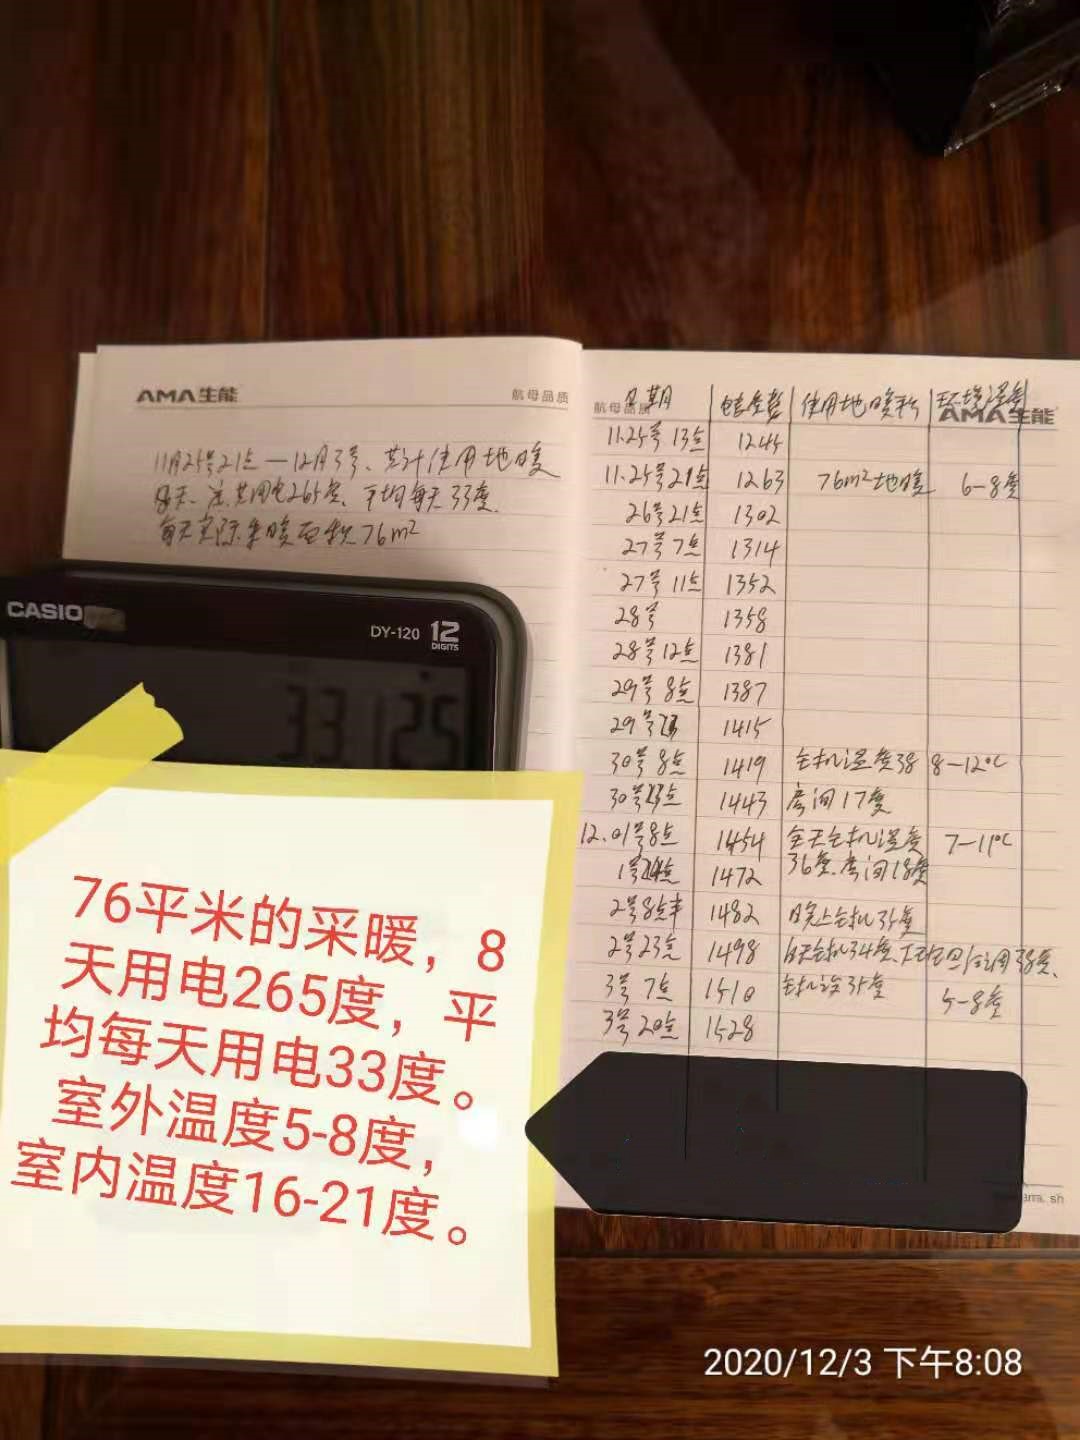 AMA生能
航母品质
11月25号21点一12月3号、共计使用地暖
8天、总共用电265度、平均每天33度.
每天实际采暖面积76m²
CASIO
DY-120 12
DIGITS
33.125
76平米的采暖，8
天用电265度，平
均每天用电33度。
室外温度5-8度，
室内温度16-21度。
航母品质
AMA生能
日期 使用地暖 环境温度
11.25号 13点 1245
11.25号21点 1263 76m²地暖 6-8度
26号21点 1302
27号7点 1314
27号11点 1352
28号 1358
28号12点 1381
29号8点 1387
29号 1415
30号8点 1419 主机温度38 8-12℃
30号23点 1443 房间17度
12.01号8点 1454 全天主机温度 7-11℃
1号 1472 36度.房间18度
2号8点半 1482 晚上主机35度
2号23点 1498 白天主机34度、 38度、
3号7点 1510 主机设35度 5-8度
3号20点 1528
2020/12/3 下午8:08